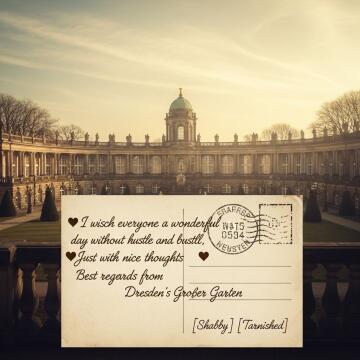 I wisch everyone a wonderful
day without hustle and bustll,
Just with nice thoughts
Best regards from
Dresden's Großer Garten
[Shabby] [Tarnished]
0534